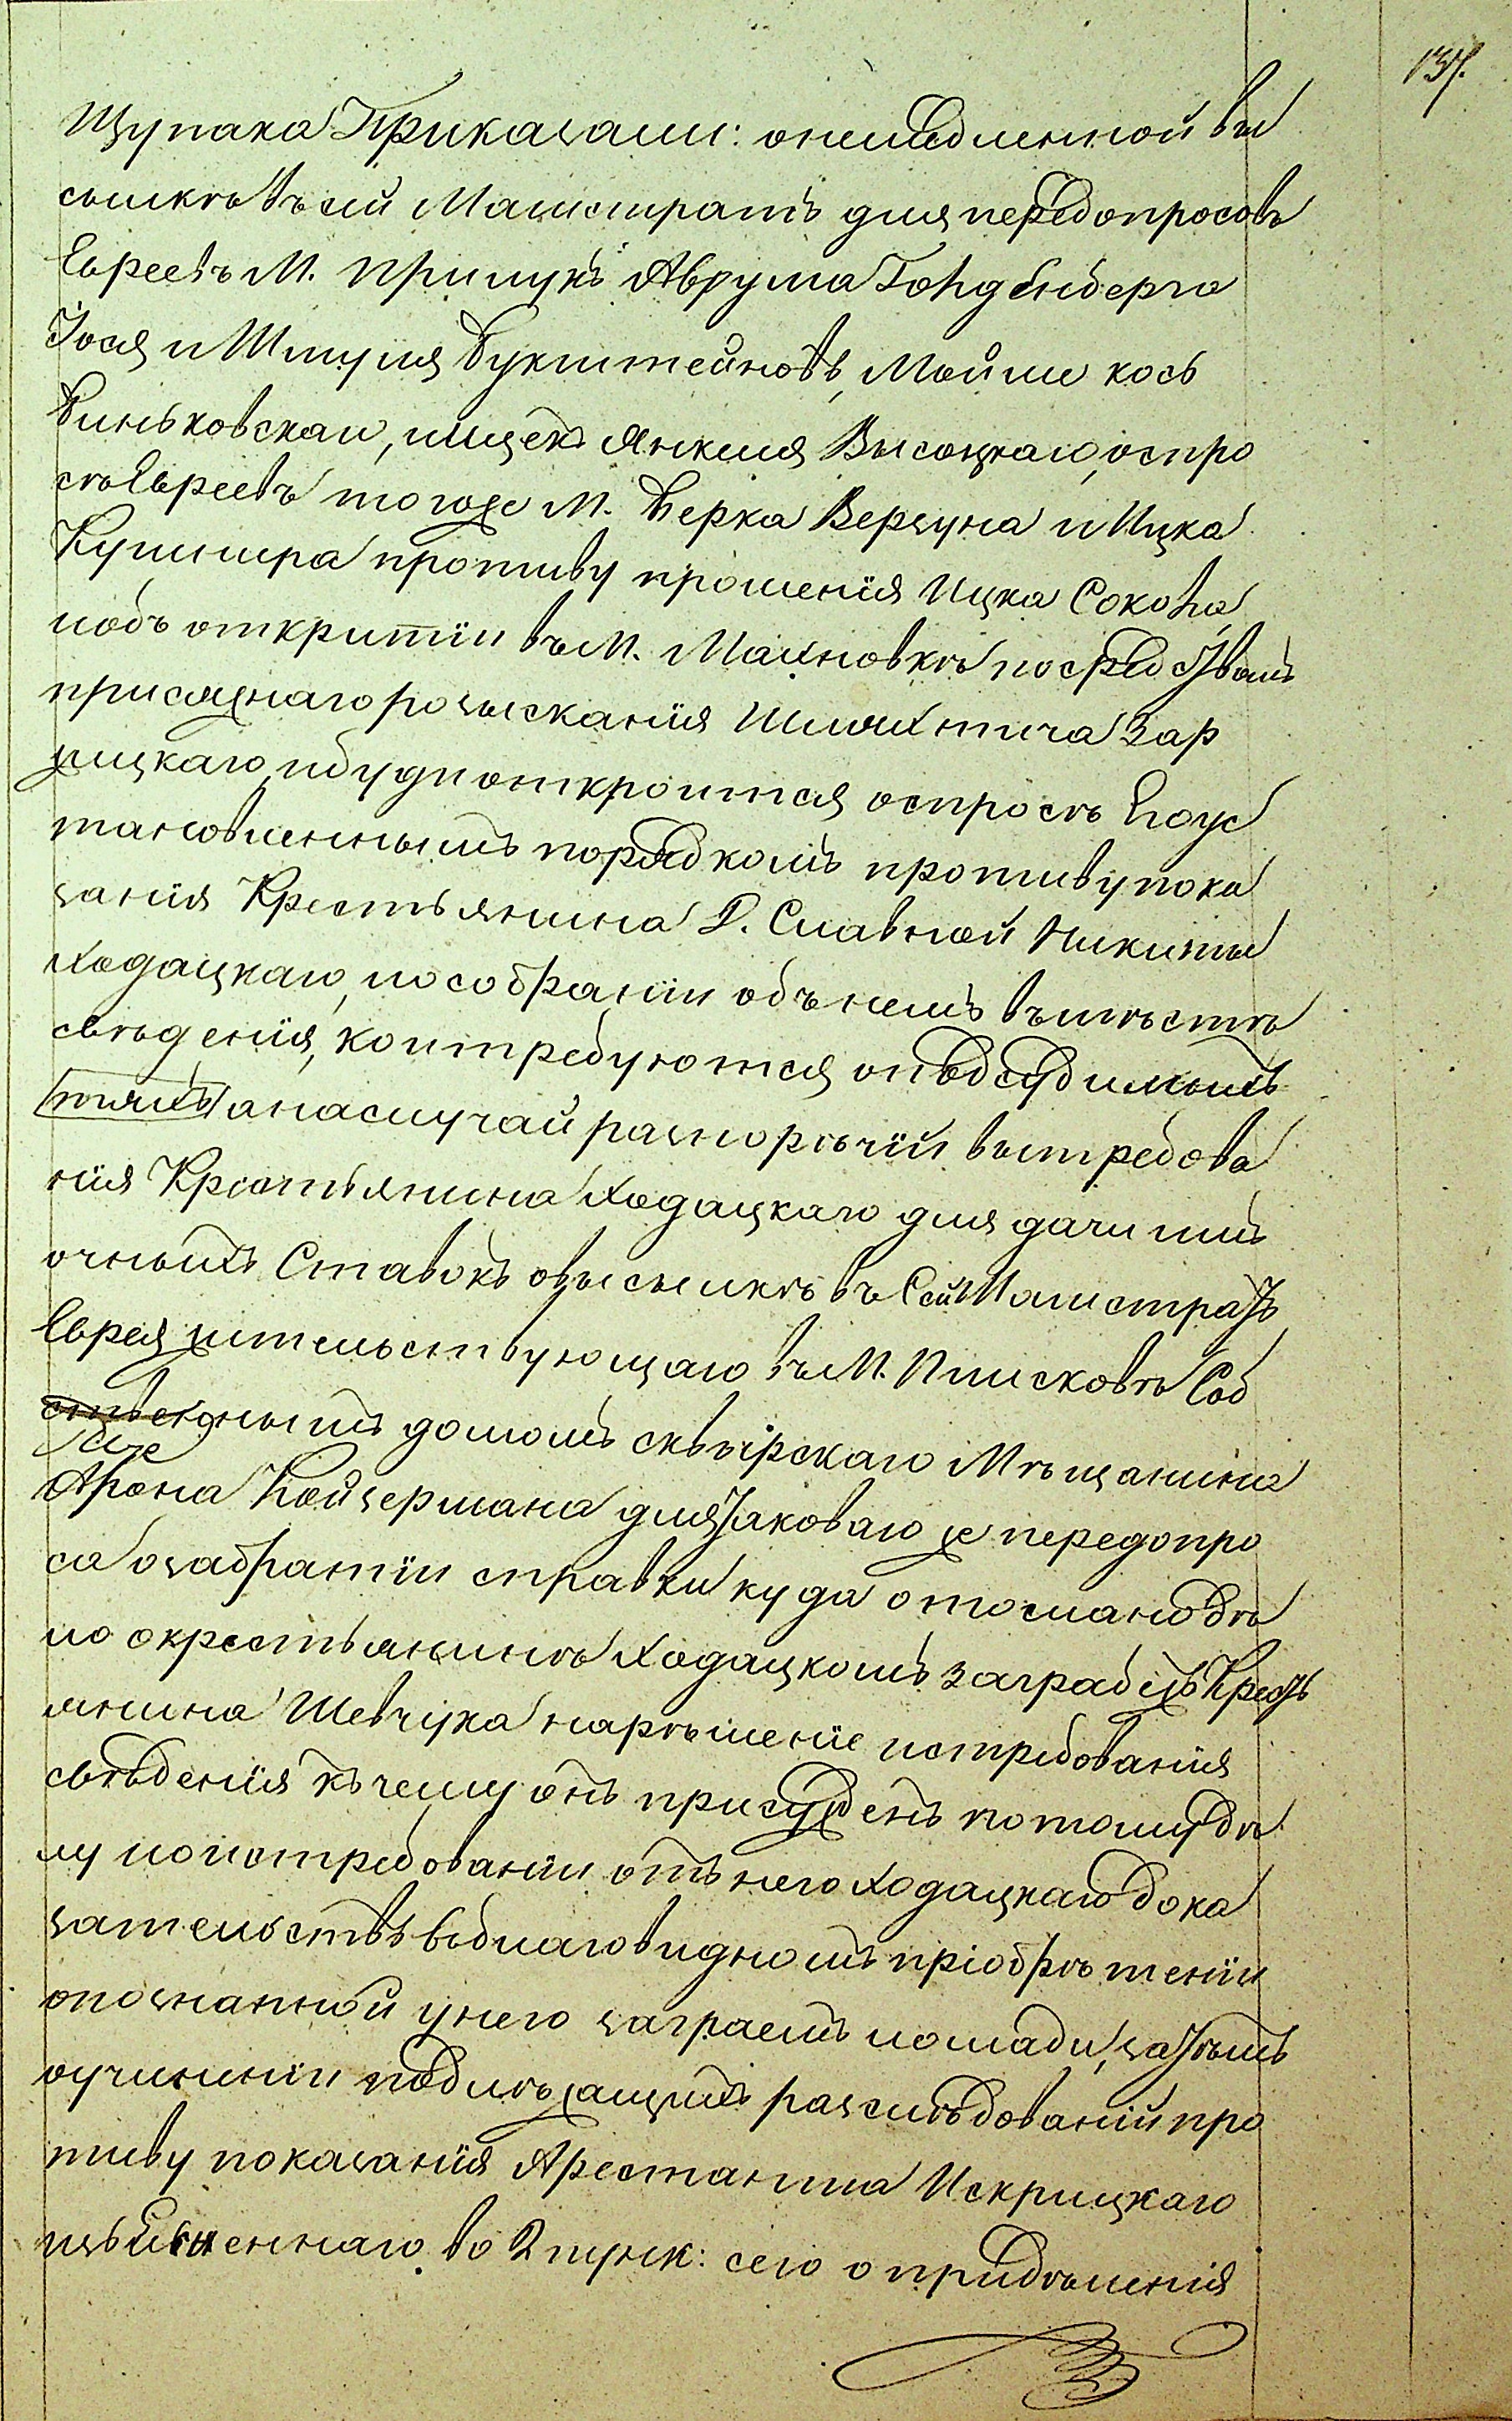 137.
Щупака Приказали: о немедленной вы
сылкѣ въ сiй Магистратъ для передопросовъ
Евреевъ М. Прилукъ Аврума Гольденберга
Iося и Шмуля Букштейновъ, Мойше кось
Биньковскаи, ищекъ Янкеля Высоцкаго, оспро
сѣ Евреевъ тогоже М. Берка Верзуна и Ицка
Кушнира противу прошенiя Ицка Сокола,
иобъ откритiи въ М. Махновкѣ посредствомъ
присяжнаго розысканiя Шляхтича Зар
жицкаго, и буди откроится оспросѣ Егоус
тановленнымъ порядкомъ противу пока
занiя Крестьянина Д. Славной Никиты
Ходацкаго, и о собранiи объ немъ въ мѣстѣ
свѣденiя, кои требуются о подсудимыхъ
а на случай разнорѣчiй вытребова
нiя Крестьянина Ходацкаго для дачи имъ
очныхъ Ставокъ о высылкѣ въ Сей Магистратъ
Еврея жительствующаго въ М. Плисковѣ Соб
ственнымъ домомъ сквирскаго Мѣщанина
Арона Койзермана для таковаго же передопро
са о забратiи справки куда отослано дѣ
ло о крестьянинѣ Ходацкомъ за грабежъ Кресть
янина Шевчука на рѣшенiе истребованiя
свѣденiя къ чему онъ присужденъ по тому дѣ
лу и о истребованiи отъ него Ходацкаго дока
зательствъ въ благовидномъ прiобрѣтенiи
опознанной у него заграемъ лошади, затѣмъ
о учиненiи подлѣжащихъ разслѣдованiй про
тиву показанiя Арестанта Искрицкаго
изъясненнаго во 2 пунк: сего опридѣленiя